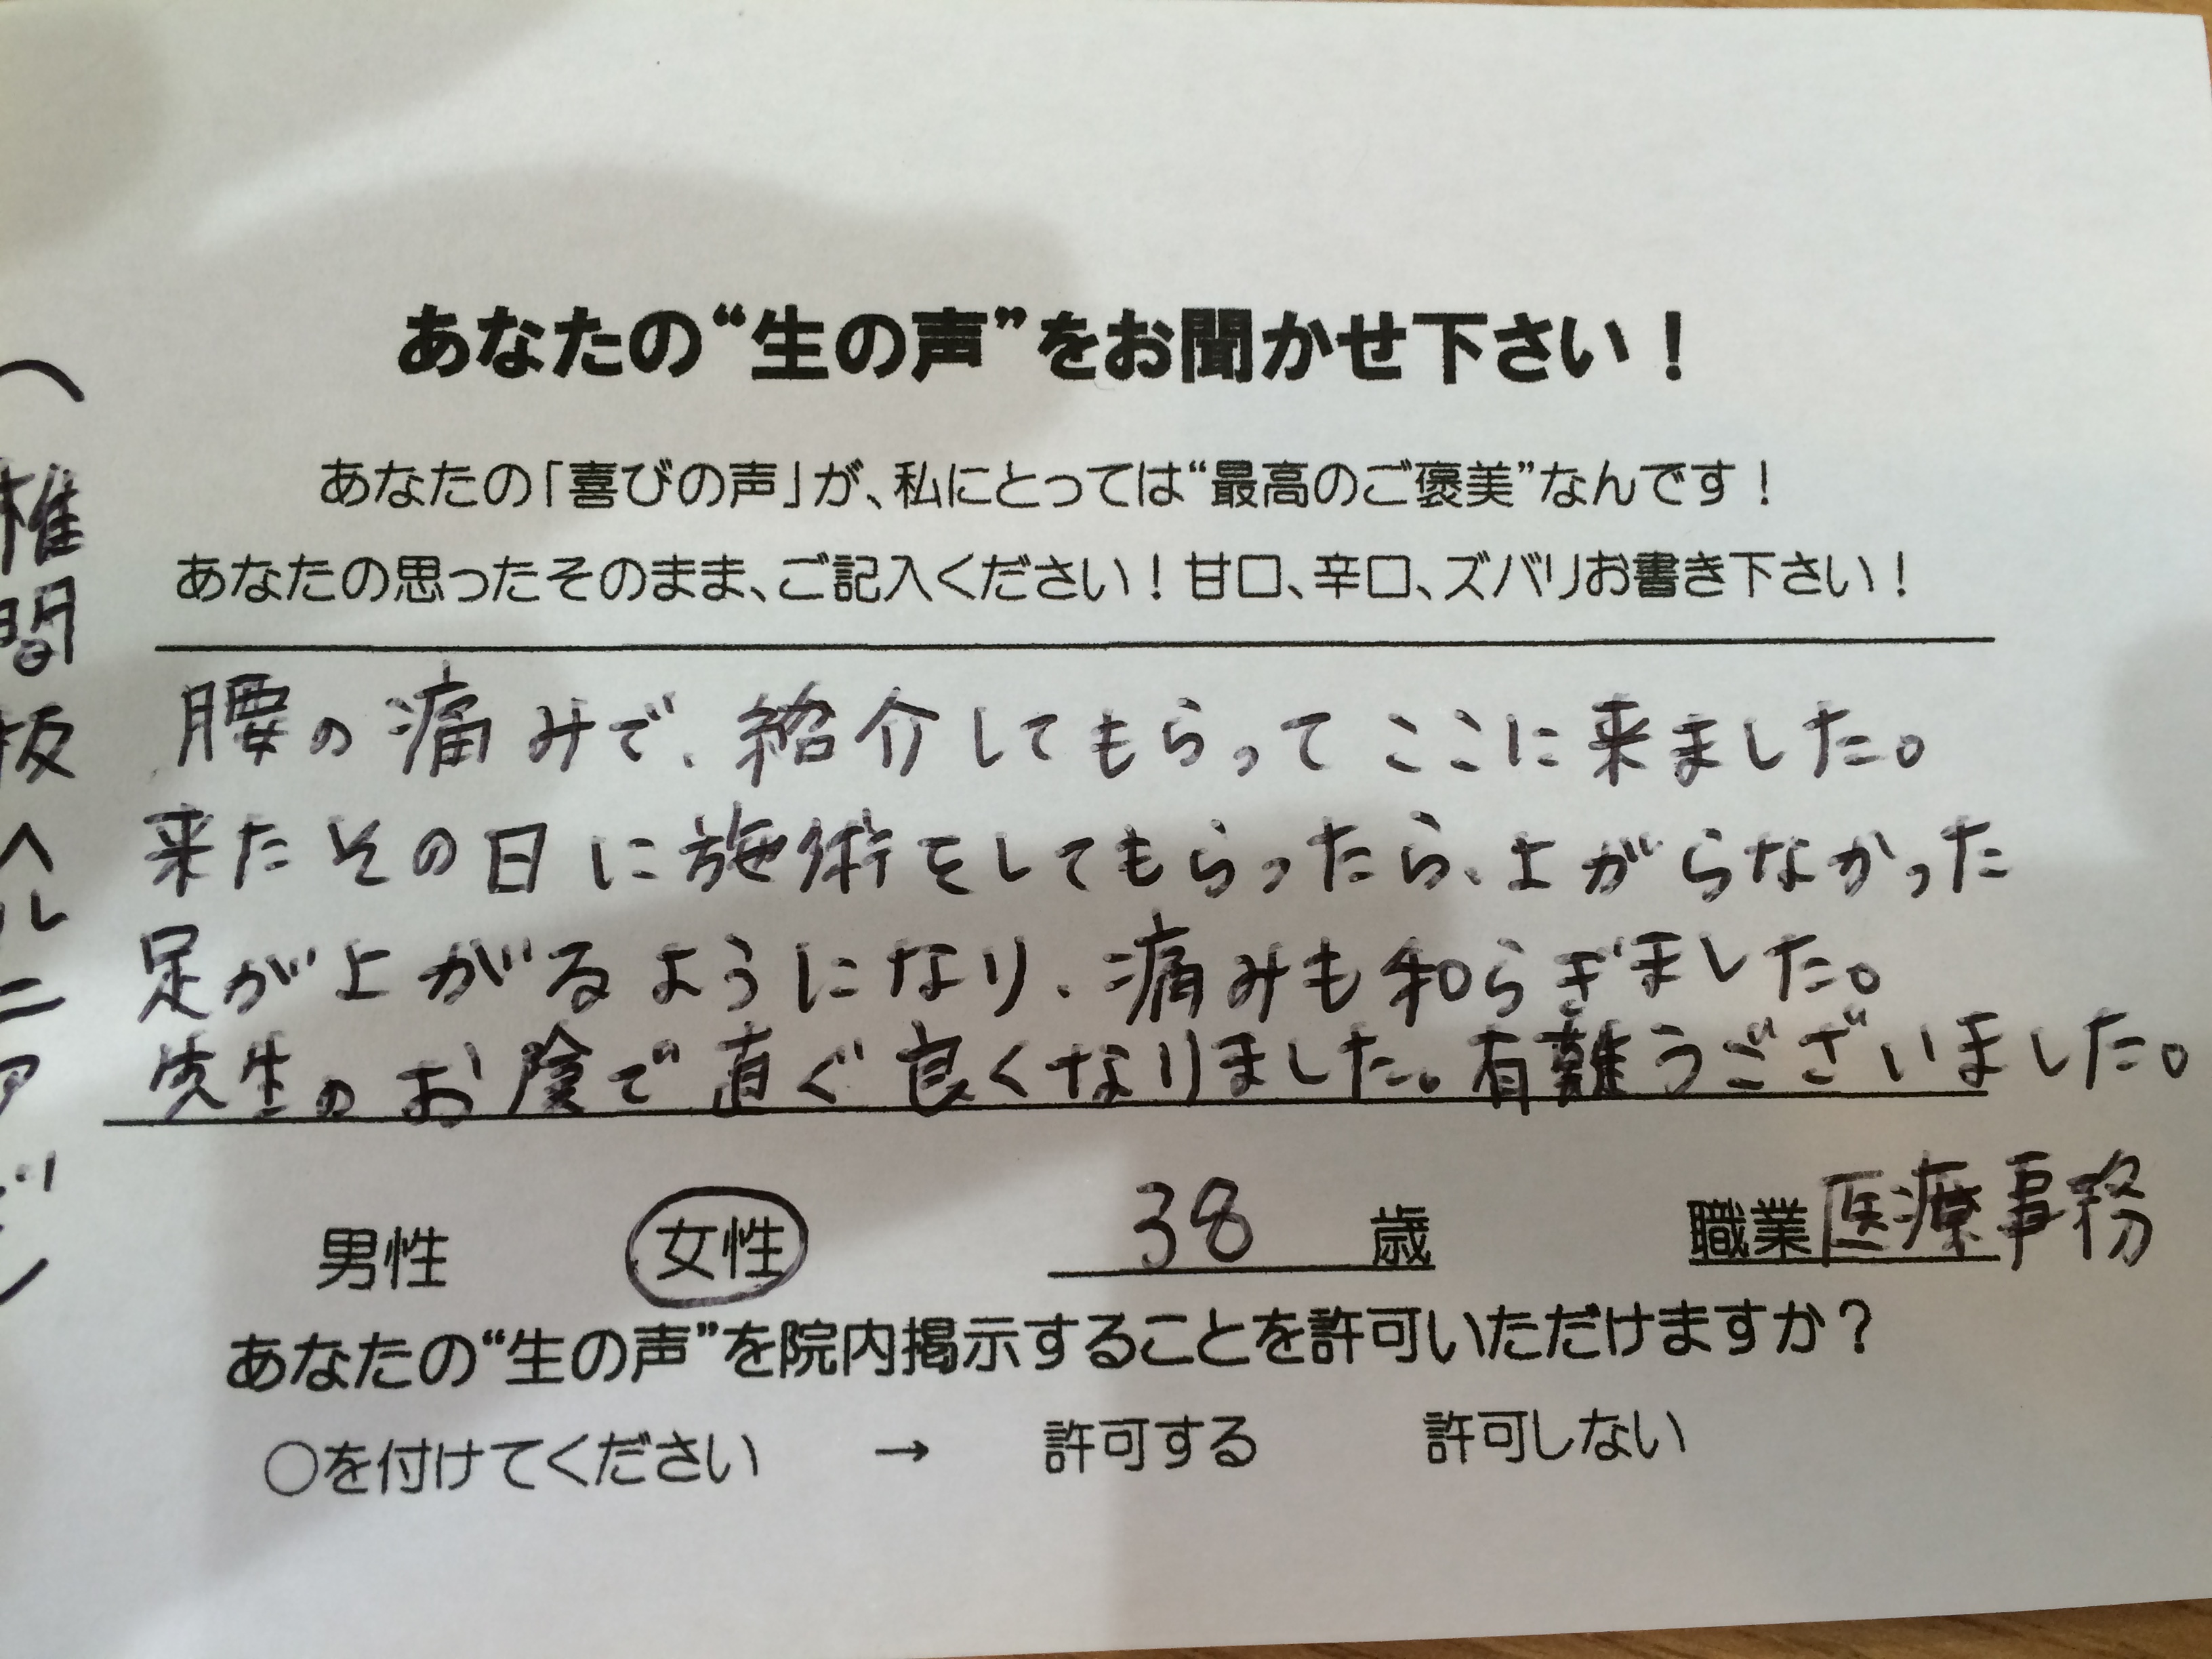 あなたの“生の声”をお聞かせ下さい！
あなたの「喜びの声」が、私にとっては“最高のご褒美”なんです！
あなたの思ったそのまま、ご記入ください！甘口、辛口、ズバリお書き下さい！
腰の痛みで、紹介してもらってここに来ました。
来たその日に施術をしてもらったら、上がらなかった
足が上がるようになり、痛みも和らぎました。
先生のお陰で直ぐ良くなりました。有難うございました。
男性 女性 38 歳 職業 医療事務
あなたの“生の声”を院内掲示することを許可いただけますか？
○を付けてください → 許可する 許可しない
（椎間板ヘルニア